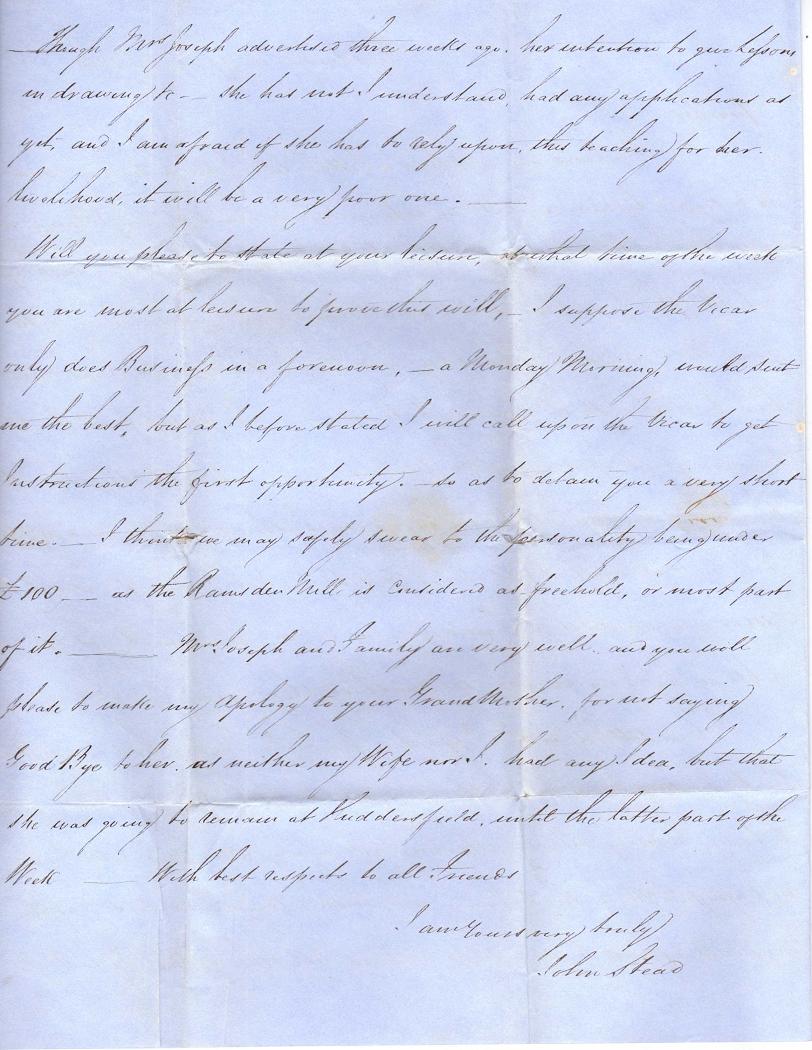 Though Mrs Joseph advertised three weeks ago. her intention to give Lessons
in drawing &c — she has not I understand, had any applications as
yet, and I am afraid if she has to rely upon, this teaching for her.
livelihood, it will be a very poor one. —
Will you please to state at your leisure, at what time of the week
you are most at leisure to prove this will, — I suppose the Vicar
only does Business in a forenoon, — a Monday Morning, would suit
me the best, but as I before stated I will call upon the Vicar to get
Instructions the first opportunity. — so as to detain you a very short
time. — I think we may safely swear to the personality being under
£100 — as the Ramsden Mill, is considered as freehold, or most part
of it. — Mrs Joseph and Family are very well. and you will
please to make my Apology to your Grand Mother, for not saying
Good Bye to her. as neither my Wife nor I. had any Idea, but that
she was going to remain at Huddersfield, until the latter part of the
Week — With best respects to all Friends
I am Yours very truly
John Stead